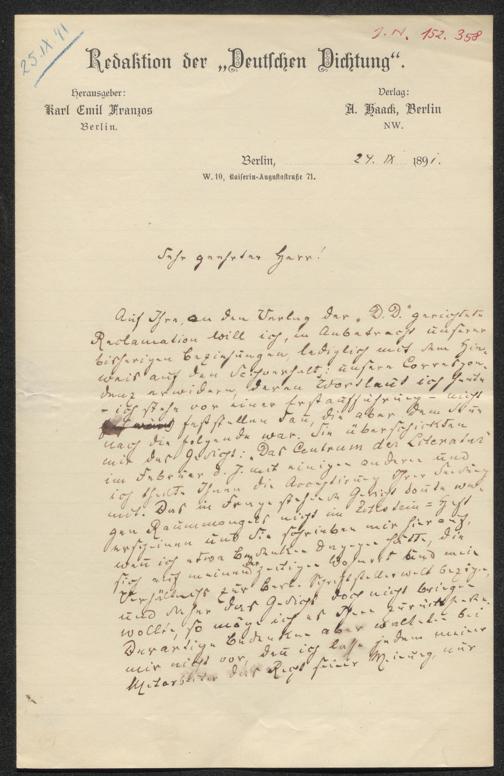 25 IX 91
J. N. 152.358
Redaktion der „Deutschen Dichtung“.
Herausgeber:
Karl Emil Franzos
Berlin.
Verlag:
A. Haack, Berlin
NW.
Berlin, 24. IX 1891.
W. 10, Kaiserin-Augustastraße 71.
Sehr geehrter Herr!
Auf Ihre, an den Verlag der „D. D.“ gerichtete
Reclamation will ich, in Anbetracht unserer
bisherigen Beziehungen, lediglich mit dem Hin-
weis auf den Sachverhalt: unsere Correspon-
denz erwidern, deren Wortlaut ich heute
- ich stehe vor einer Erstaufführung - nicht
feststellen kann, die aber dem Sinn
nach die folgende war. Sie überschickten
mir das Gedicht: „Das Centrum der Literatur
im Februar d. J. mit einigen anderen und
ich theilte Ihnen die Acceptirung Ihrer Sendung
mit. Das in Frage stehende Gedicht konnte we-
gen Raummangels nicht im Heft
erscheinen und Sie schrieben mir hierauf,
wenn ich etwa Bedenken dagegen hätte, die
sich auf meinen derzeitigen Wohnort und mein
Verhältnis zur Berl. Schriftstellerwelt bezögen,
und daher das Gedicht doch nicht bringen
wolle, so möge ich es Ihnen zurückstellen.
Derartige Bedenken aber walteten bei
mir nicht vor, denn ich lasse jedem meiner
Mitarbeiter das Recht seiner Meinung, nur